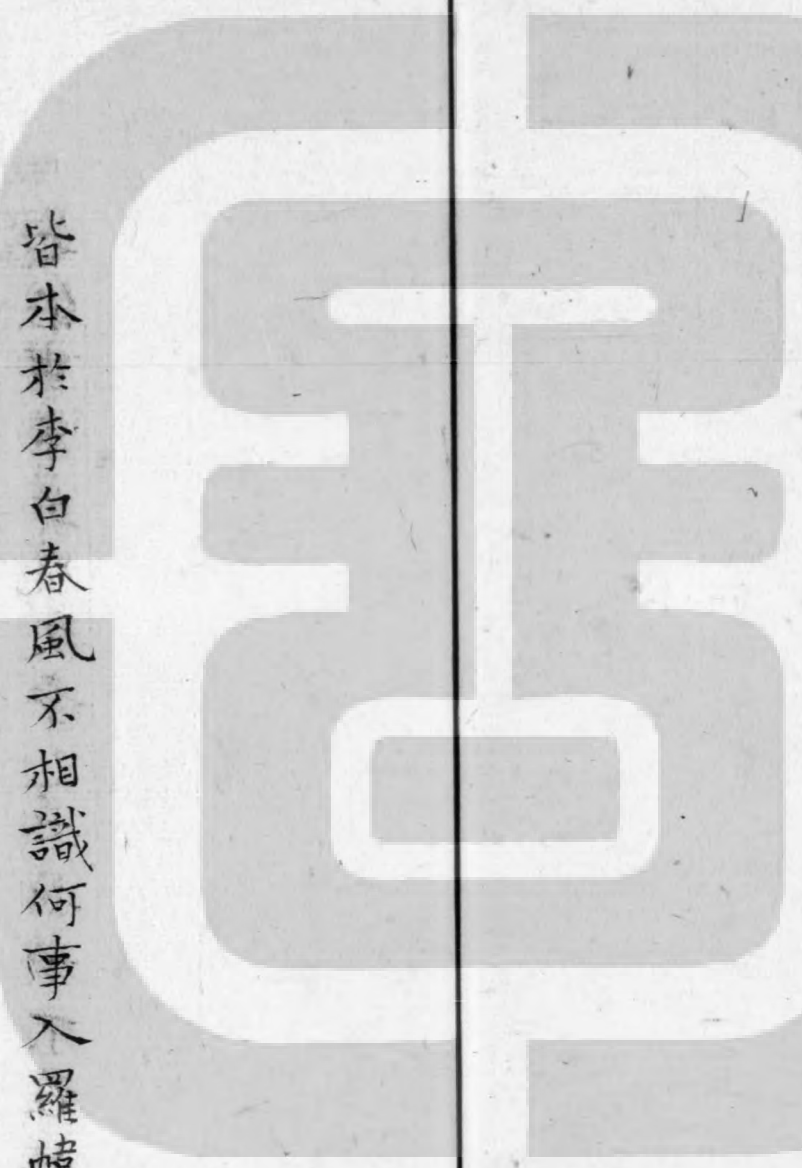 皆本於李白春風不相識何事入羅幃